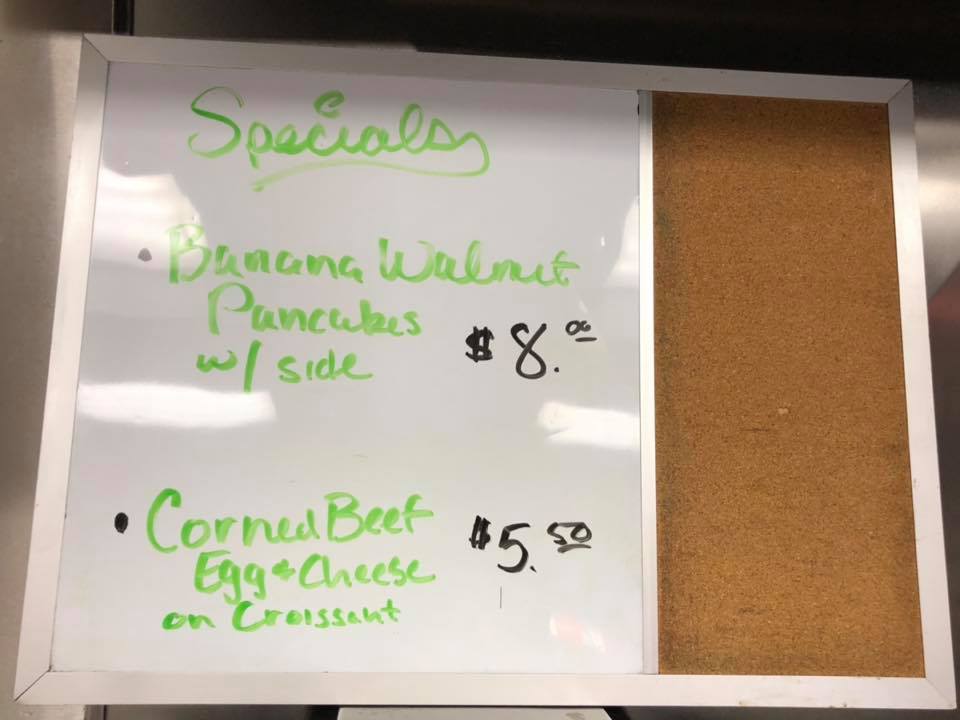 Specials
• Banana Walnut
Pancakes
w/ side $8.00
• Corned Beef $5.50
Egg & Cheese
on Croissant